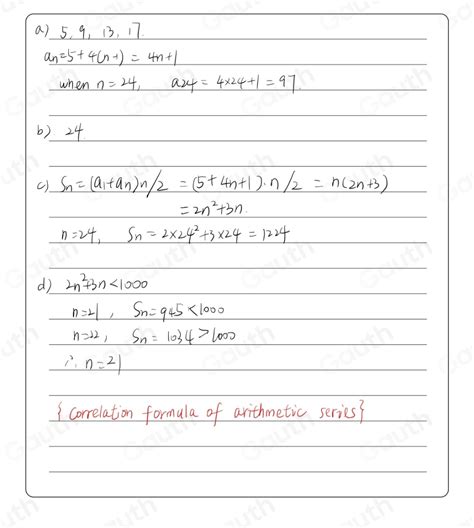 a) 5, 9, 13, 17.
an=5+4(n-1) = 4n+1
when n=24, a24 = 4×24+1 = 97.
b). 24
c) Sn=(a1+an)n/2 = (5+4n+1).n/2 = n(2n+3)
=2n²+3n.
n=24, Sn=2×24²+3×24 = 1224
d) 2n²+3n<1000
n=21, Sn=945<1000
n=22, Sn=1034>1000
∴ n=21
{ Correlation formula of arithmetic series}